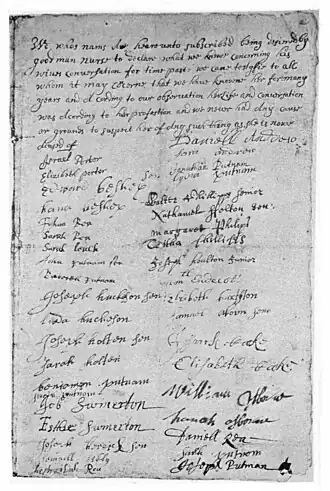 We whos nams Are heareunto subscribed being desired by
good man Nurse to declare what we knowe concerning his
wives conversation for time past: we cane testyfie to all
whom it may concerne that we have knowne her for many
years and Acording to our observation her life and conversation
was Acording to her profession and we never had Any cause
or grounds to suspect her of Any such thing as she is nowe
Acused of
Israel Porter
Elizabeth porter
Edward beshep sen
hana beshep
Joshua Rea
Sarah Rea
Sarah leach
John putnam sen
Rebecah putnam
Joseph hucheson sen
lida hucheson
Joseph holten sen
Sarah holten
benjamin putnam
Sarah putnam
Job Swinerton
Esther Swinerton
Joseph herrick sen
Samuell sibly
hephzibah Rea
Daniell Andrew
Sara Andrew
Jonathan Putnam
Lydia Putnam
Walter Phillipps senior
Nathaniel Felton sen:
margaret Philips
Tabitha Phillipps
Joseph houlton Junior
Samuell Endecott
Elizibeth buxtston
samuel aborn senr
Isaack Cooke
Elisabeth Cooke
William Osborn
hanah osborne
Daniell Rea
Sarah putnam
Joseph Putman